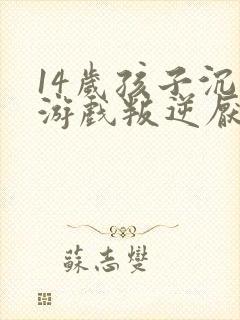 14歲孩子沉
游戲叛逆厭
蘇志燮